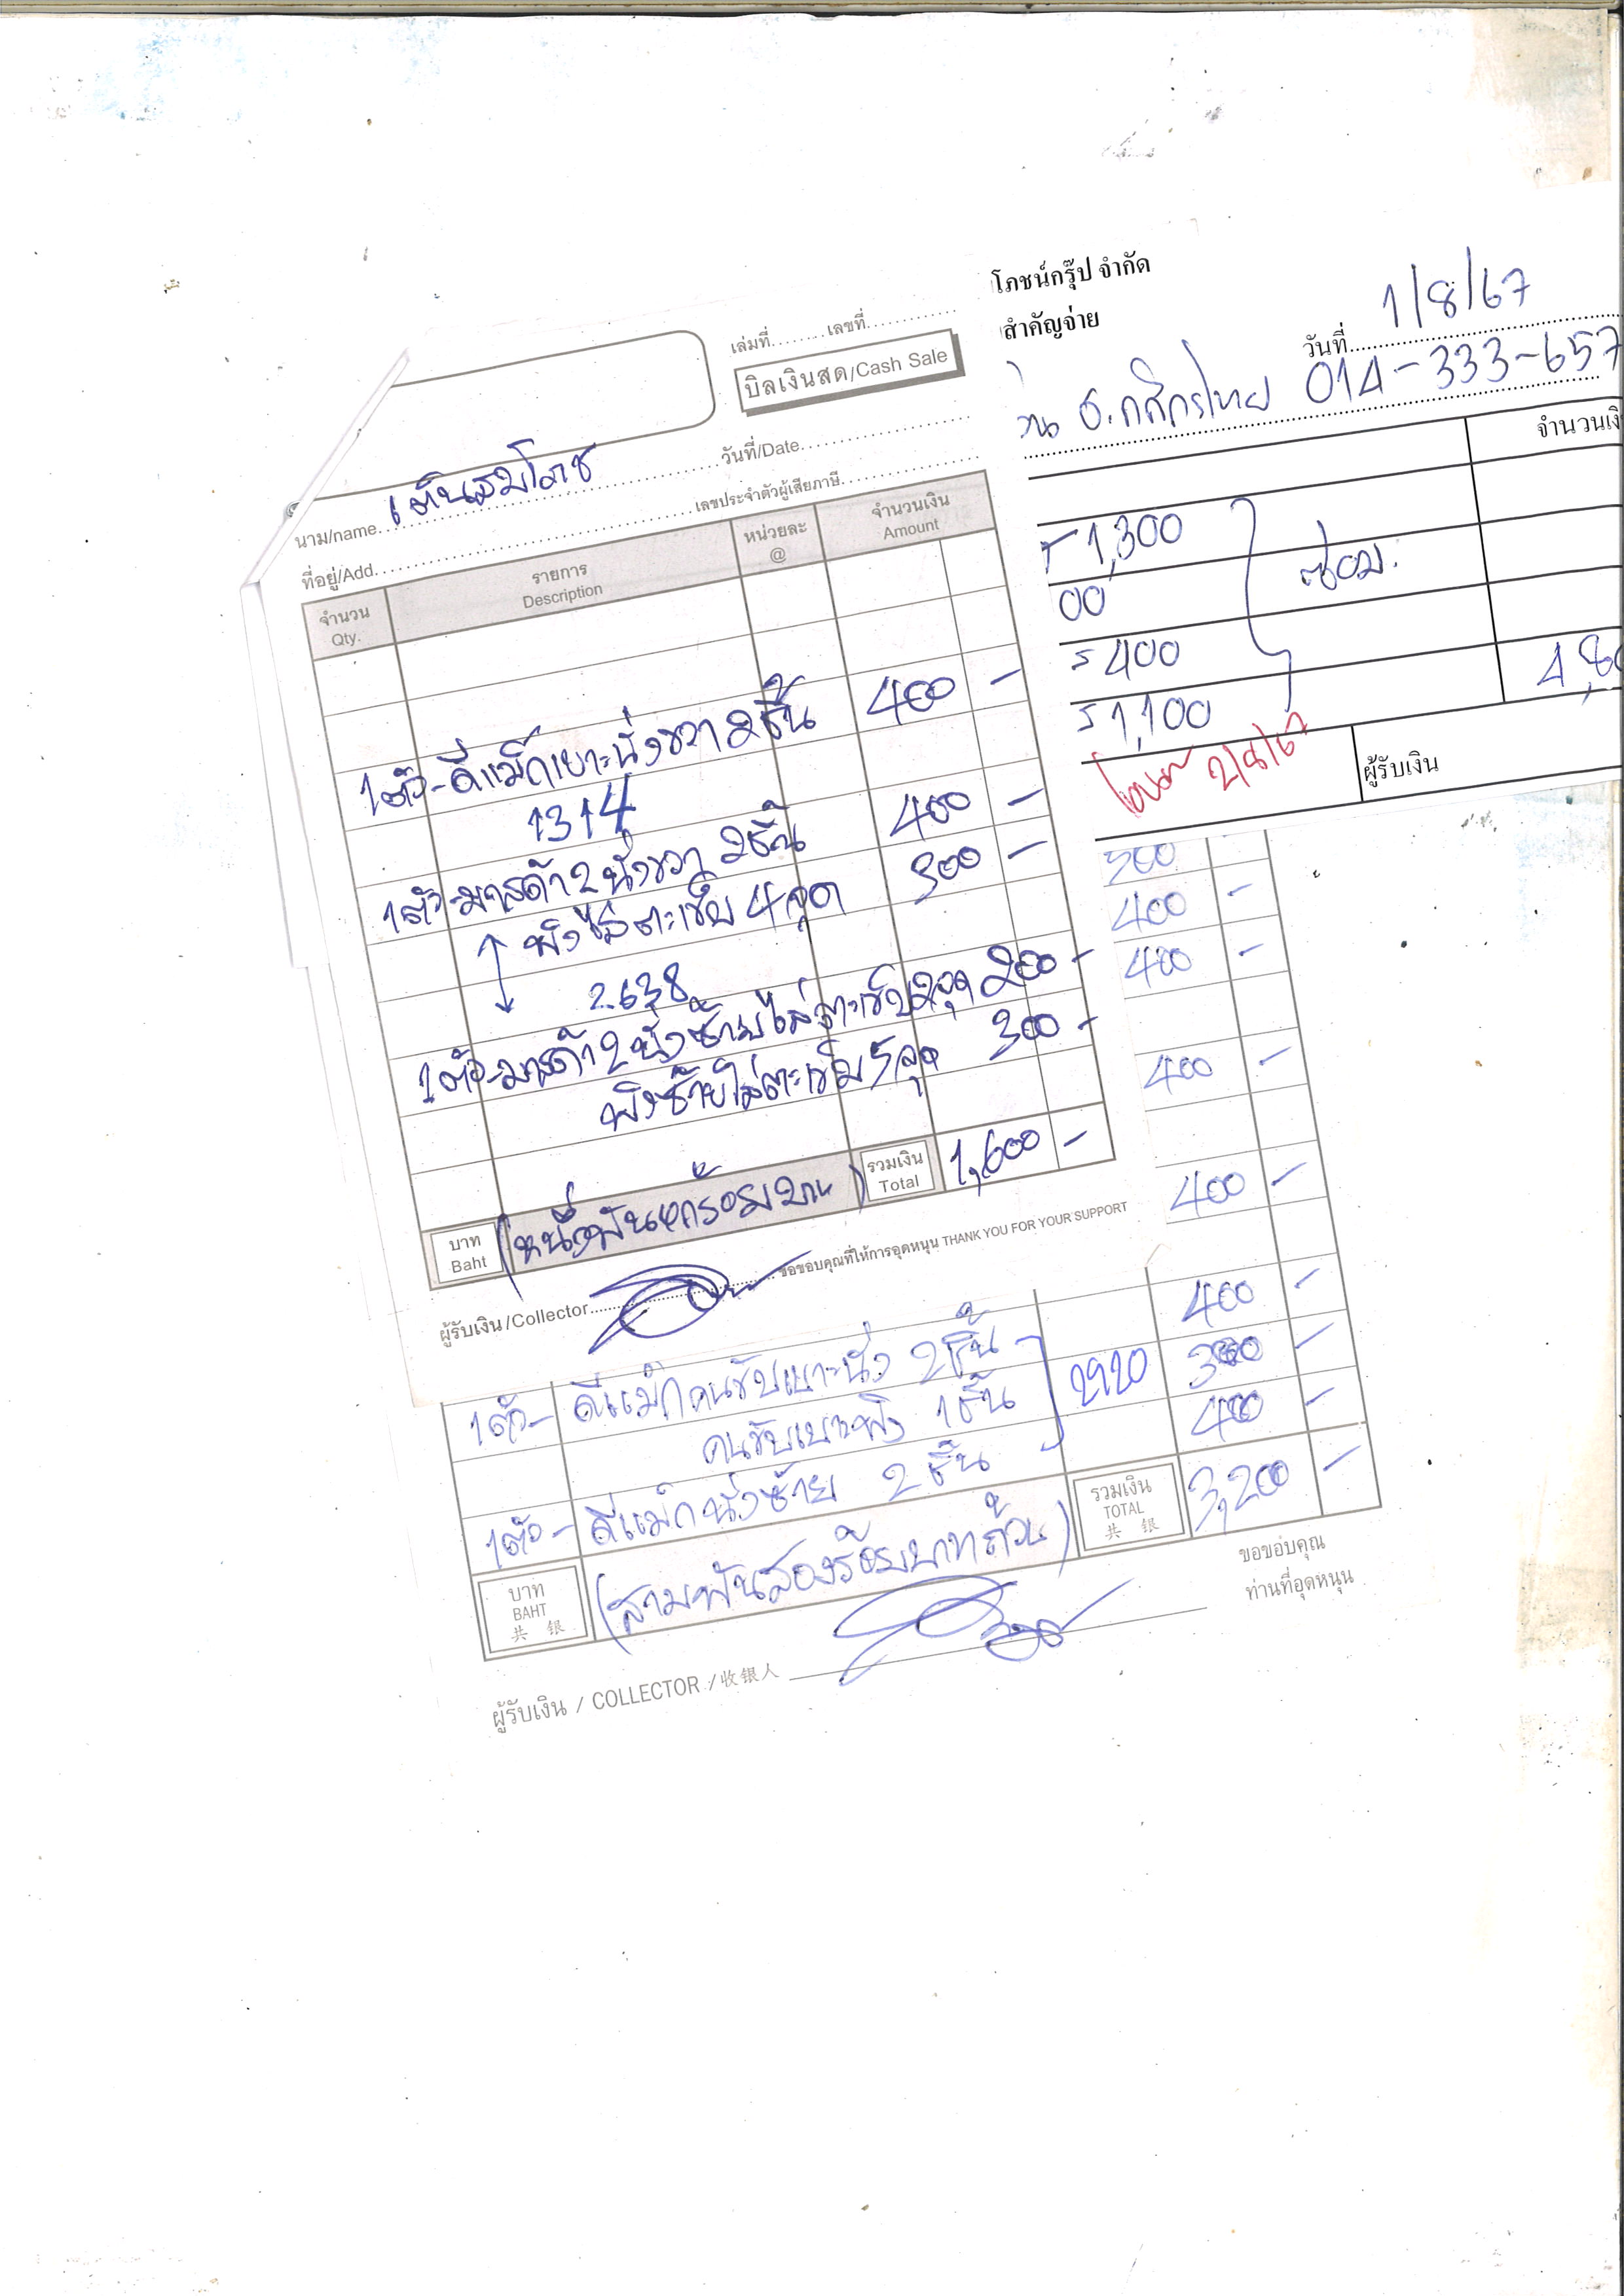 โภชน์กรุ๊ป จำกัด
สำคัญจ่าย
วันที่ 1/8/67
ธ.กสิกรไทย 014-333-657
จำนวนเงิ
1,300
00
ซ่อม.
400
1,100
4,8
2/8/67
ผู้รับเงิน
เล่มที่.........เลขที่...............
บิลเงินสด/Cash Sale
นาม/name เต็นสมโภช วันที่/Date
ที่อยู่/Add. เลขประจำตัวผู้เสียภาษี
จำนวน Qty. รายการ Description หน่วยละ @ จำนวนเงิน Amount
1ตัว-ดีแม็กเบาะนั่งขวา 2ชิ้น 400 -
1314
1ตัว-มาสด้า2นั่งขวา 2ชิ้น 400 -
พิงไล่ตะเข็บ 4จุด 300 -
2638
1ตัว-มาสด้า2นั่งซ้ายไล่ตะเข็บ2จุด 200 -
พิงซ้ายไล่ตะเข็บ 5จุด 300 -
บาท Baht (หนึ่งพันหกร้อยบาท) รวมเงิน Total 1,600 -
ผู้รับเงิน/Collector ขอขอบคุณที่ให้การอุดหนุน THANK YOU FOR YOUR SUPPORT
300
400 -
400 -
400 -
400 -
400 -
1ตัว- ดีแม็กคนขับเบาะนั่ง 2ชิ้น 2920 300 -
คนขับเบาะพิง 1ชิ้น 400 -
1ตัว- ดีแม็กนั่งซ้าย 2ชิ้น
บาท BAHT 共 银 (สามพันสองร้อยบาทถ้วน) รวมเงิน TOTAL 共 银 3,200 -
ขอขอบคุณ
ท่านที่อุดหนุน
ผู้รับเงิน / COLLECTOR / 收银人